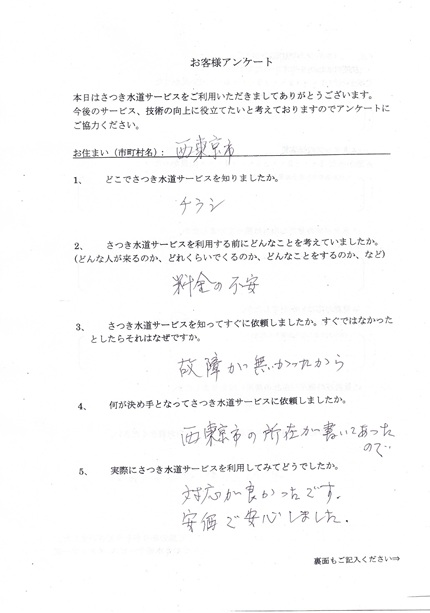 お客様アンケート
本日はさつき水道サービスをご利用いただきましてありがとうございます。
今後のサービス、技術の向上に役立てたいと考えておりますのでアンケートに
ご協力ください。
お住まい（市町村名）： 西東京市
1、 どこでさつき水道サービスを知りましたか。
チラシ
2、 さつき水道サービスを利用する前にどんなことを考えていましたか。
(どんな人が来るのか、どれくらいでくるのか、どんなことをするのか、など)
料金の不安
3、 さつき水道サービスを知ってすぐに依頼しましたか。すぐではなかった
としたらそれはなぜですか。
故障が無かったから
4、 何が決め手となってさつき水道サービスに依頼しましたか。
西東京市の所在が書いてあった
ので
5、 実際にさつき水道サービスを利用してみてどうでしたか。
対応が良かったです。
安価で安心しました.
裏面もご記入ください⇒